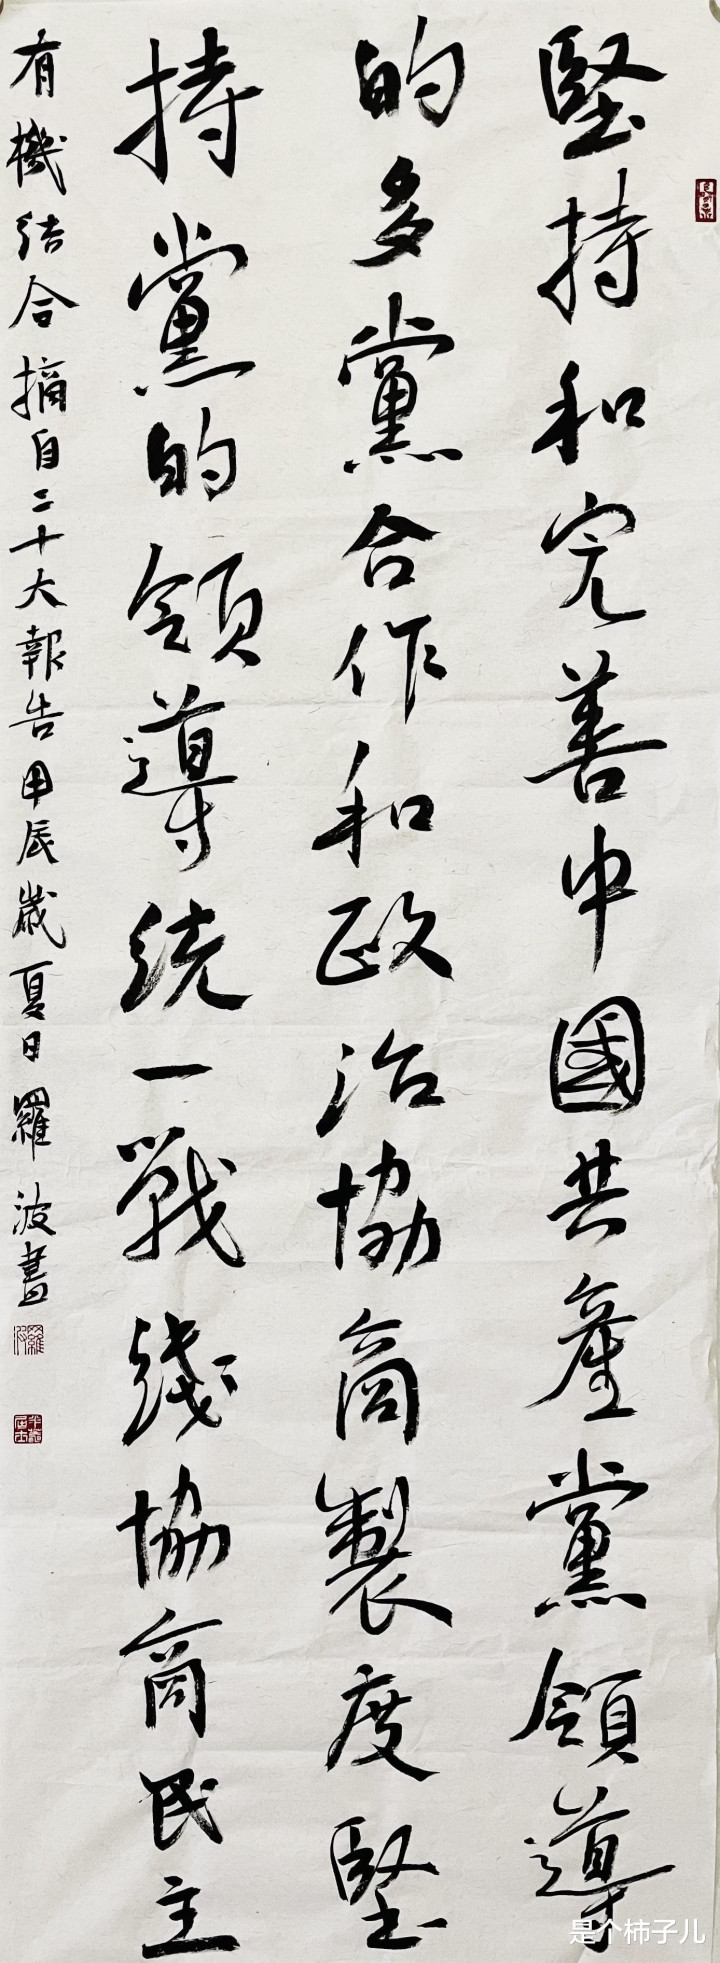 堅持和完善中國共產黨領導
的多黨合作和政治協商製度堅
持黨的領導統一戰綫協商民主
有機結合摘自二十大報告甲辰歲夏日羅波書
羅波
是个柿子儿